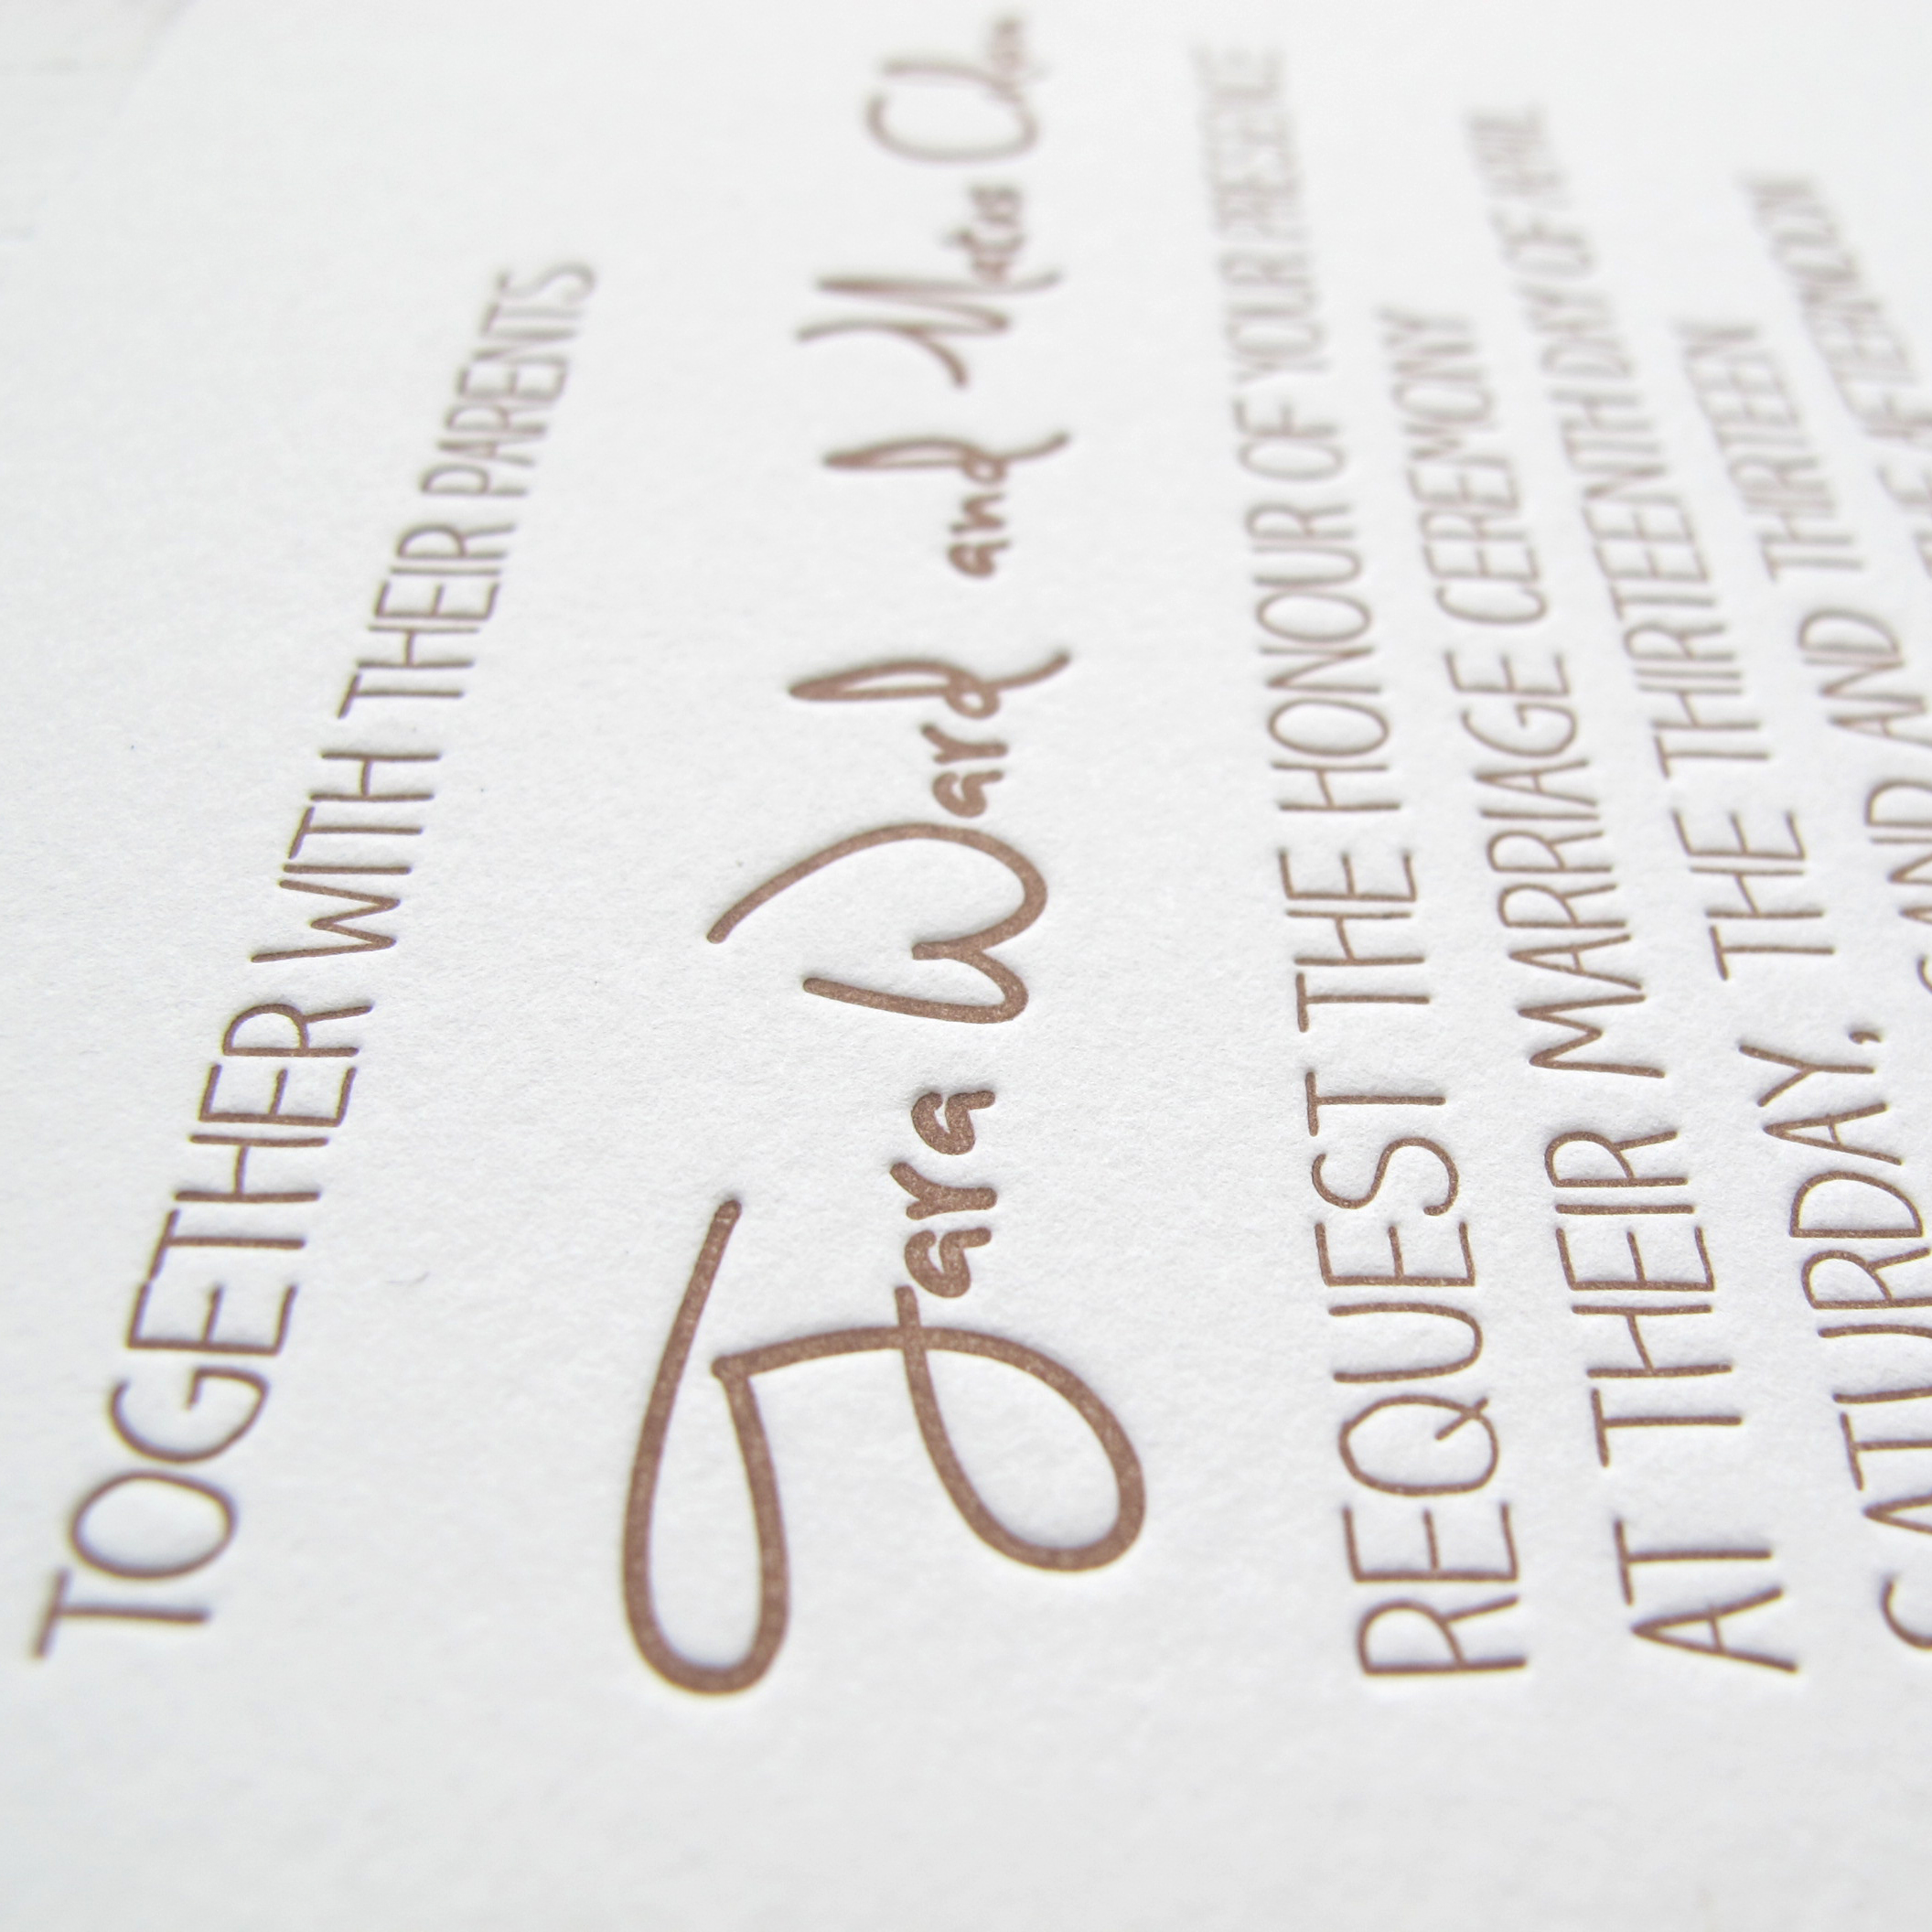 TOGETHER WITH THEIR PARENTS
Sara Ward and
REQUEST THE HONOUR OF YOUR PRESENCE
AT THEIR MARRIAGE CEREMONY
SATURDAY, THE THIRTEENTH DAY OF APRIL
AND THIRTEEN
AND